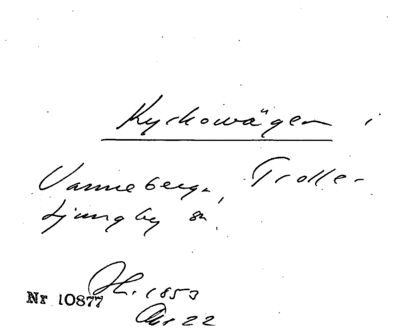 Kyrkowägen i
Vanneberga, Trolle-
Ljungby sn.
H. 1853
Nr 10877
22